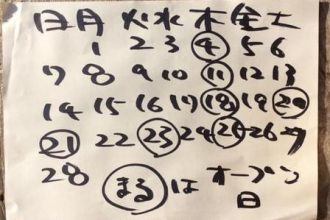 日 月 火 水 木 金 土
1 2 3 4 5 6
7 8 9 10 11 12 13
14 15 16 17 18 19 20
21 22 23 24 25 26 27
28 まる は オープン
日